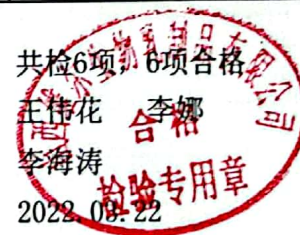 共检6项，6项合格
王伟花 李娜
李海涛
2022.09.22
生物乳制品有限公司
合格
检验专用章